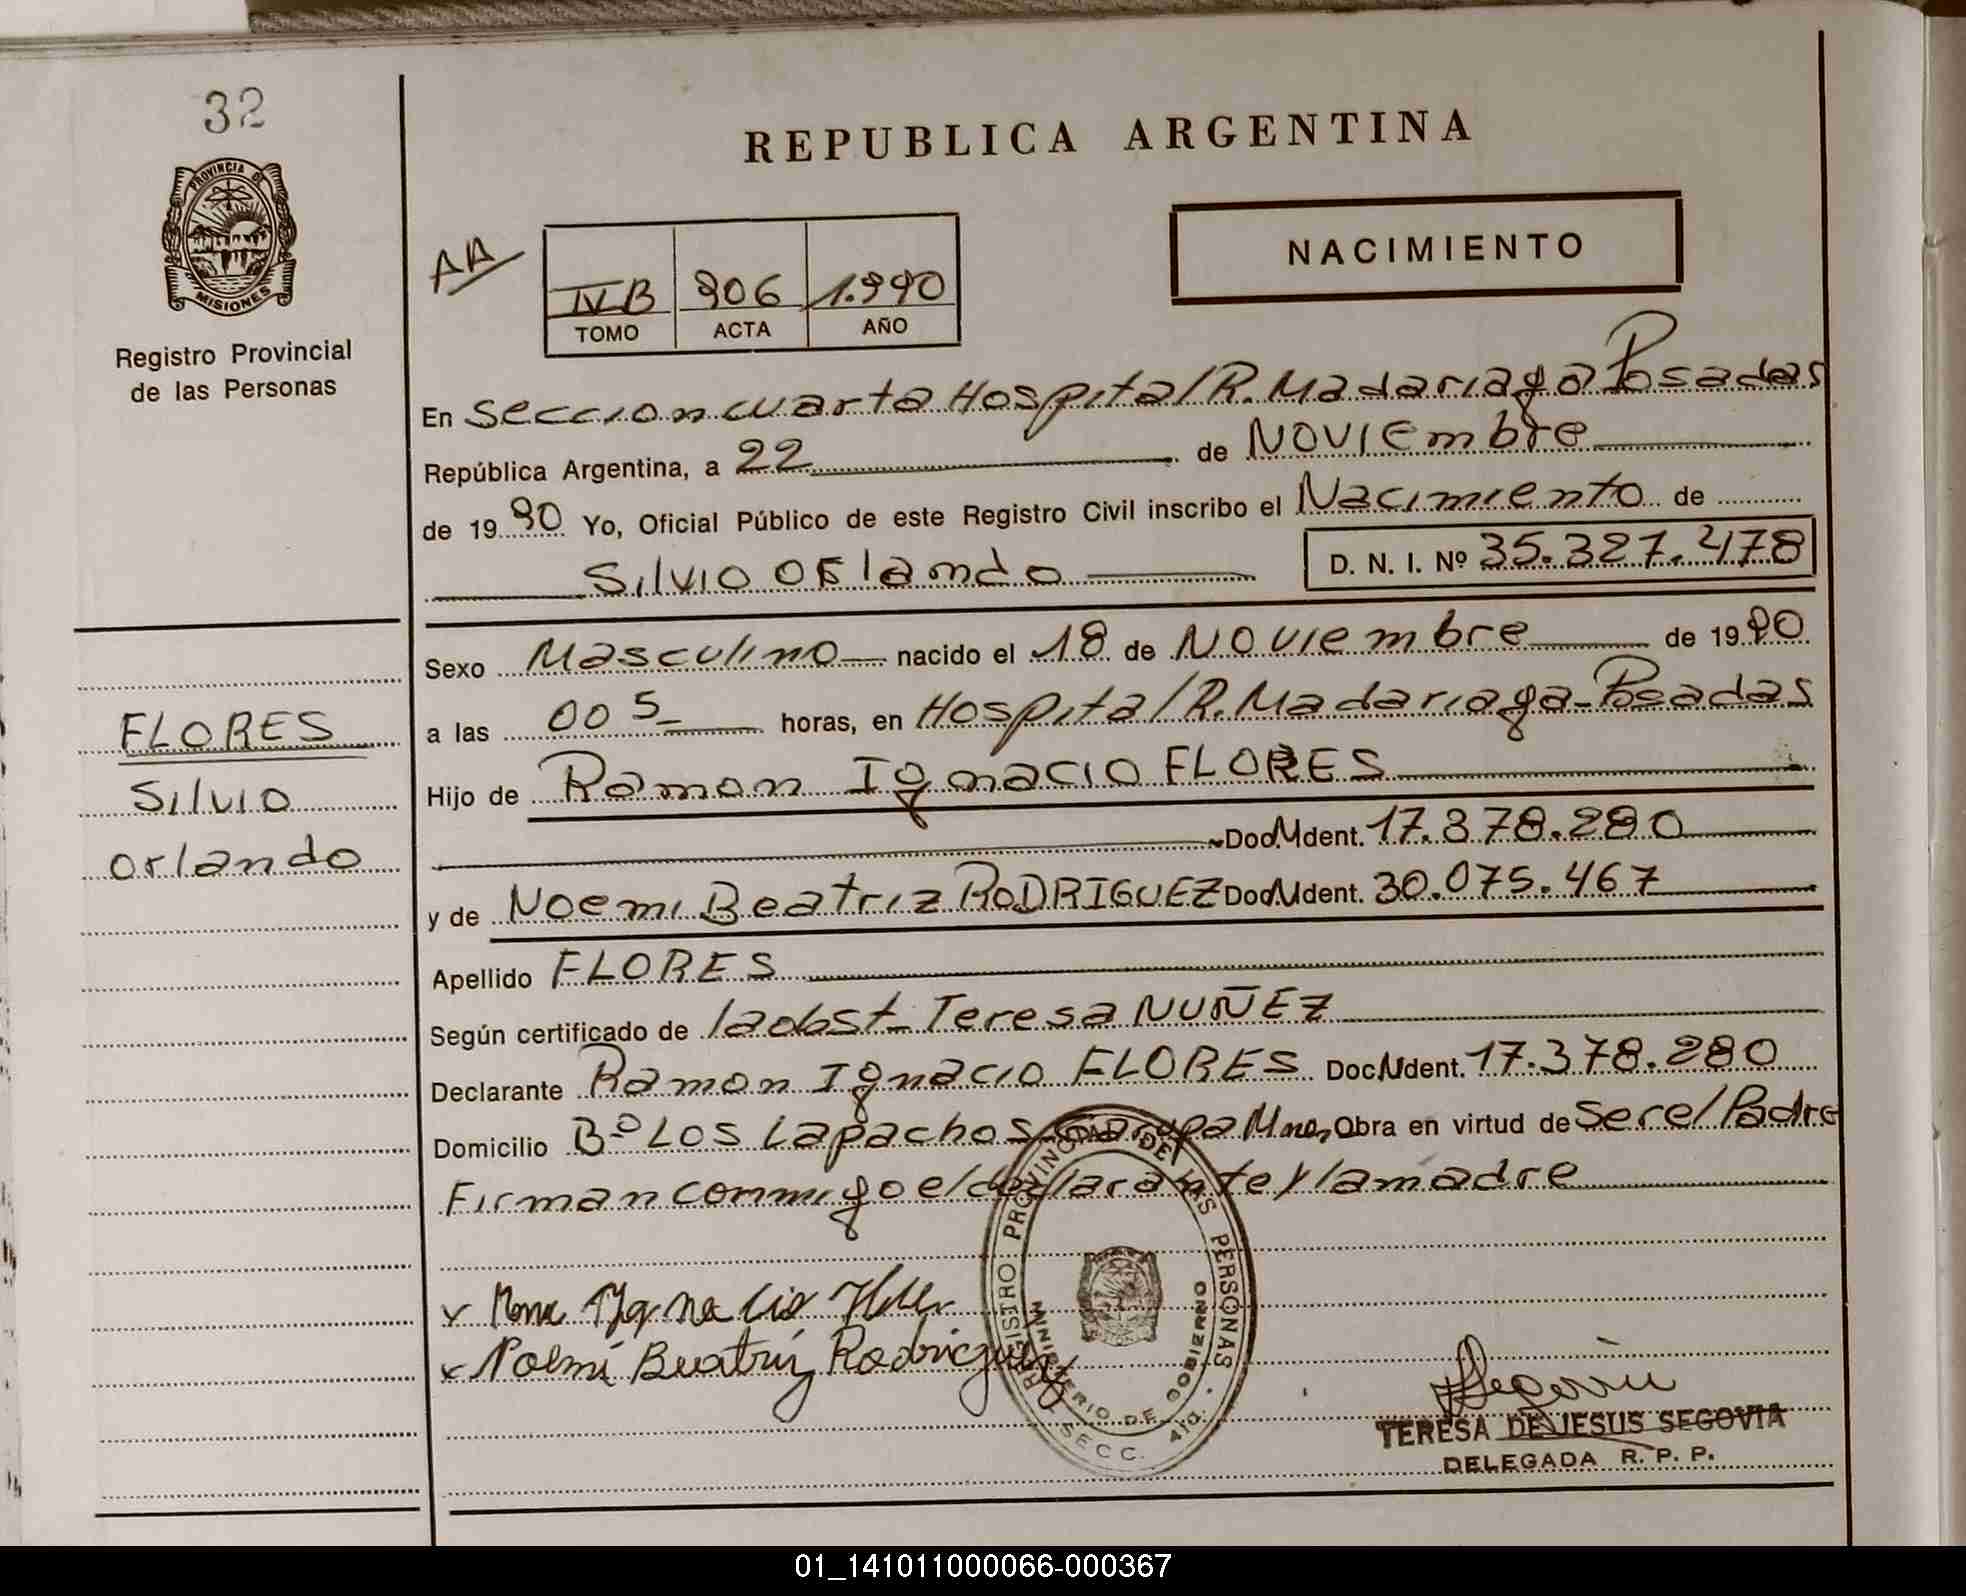 32
PROVINCIA DE
MISIONES
Registro Provincial
de las Personas
FLORES
Silvio
Orlando
REPUBLICA ARGENTINA
AA
IV B 906 1.990
TOMO ACTA AÑO
NACIMIENTO
En Seccion cuarta Hospital R. Madariaga Posadas
República Argentina, a 22 de NOVIEmbre
de 1990 Yo, Oficial Público de este Registro Civil inscribo el Nacimiento de
Silvio Orlando D. N. I. Nº 35.327.478
Sexo Masculino nacido el 18 de NOVIEmbre de 1990
a las 00 5 horas, en Hospital R. Madariaga-Posadas
Hijo de Ramon Ignacio FLORES
Doc. Ident. 17.378.280
y de Noemi Beatriz RODRIGUEZ Doc. Ident. 30.075.467
Apellido FLORES
Según certificado de la obst Teresa NUÑEZ
Declarante Ramon Ignacio FLORES Doc. Ident. 17.378.280
Domicilio Bº Los Lapachos Garupa Mnes, Obra en virtud de Ser el Padre
Firman conmigo el declarante y la madre
Noemí Beatriz Rodriguez
REGISTRO PROVINCIAL DE LAS PERSONAS
MINISTERIO DE GOBIERNO
SECC. 4ta.
Segovia
TERESA DE JESUS SEGOVIA
DELEGADA R. P. P.
01_141011000066-000367